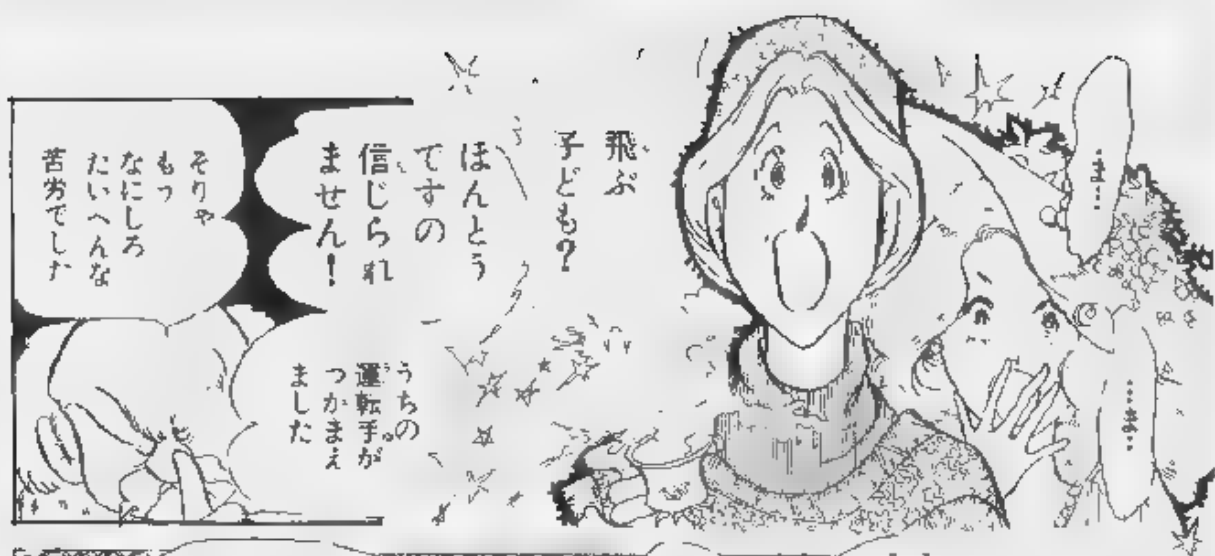 …ま…
…ま…
飛ぶ
子ども?
ほんとう
ですの
信じられ
ません!
うちの
運転手が
つかまえ
ました
そりゃ
もっ
なにしろ
たいへんな
苦労でした